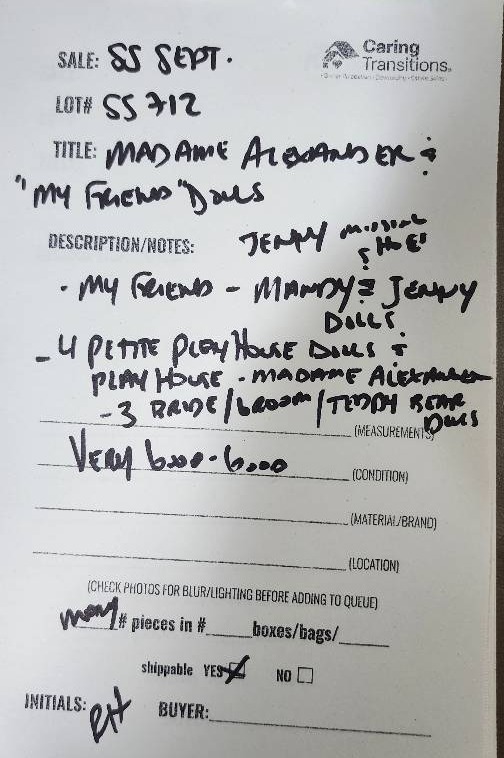 SALE: SS SEPT.
Caring
Transitions®
LOT# SS 712
TITLE: MADAME ALEXANDER &
"MY FRIEND" DOLLS
DESCRIPTION/NOTES: JENNY MISSING
SHOES
· MY FRIEND - MANDY & JENNY
DOLLS.
- 4 PETITE PLAY HOUSE DOLLS +
PLAY HOUSE - MADAME ALEXANDER
- 3 BRIDE/GROOM/TEDDY BEAR
DOLLS
(MEASUREMENTS)
VERY GOOD - GOOD (CONDITION)
(MATERIAL/BRAND)
(LOCATION)
(CHECK PHOTOS FOR BLUR/LIGHTING BEFORE ADDING TO QUEUE)
many # pieces in # boxes/bags/
shippable YES NO
INITIALS: BUYER: